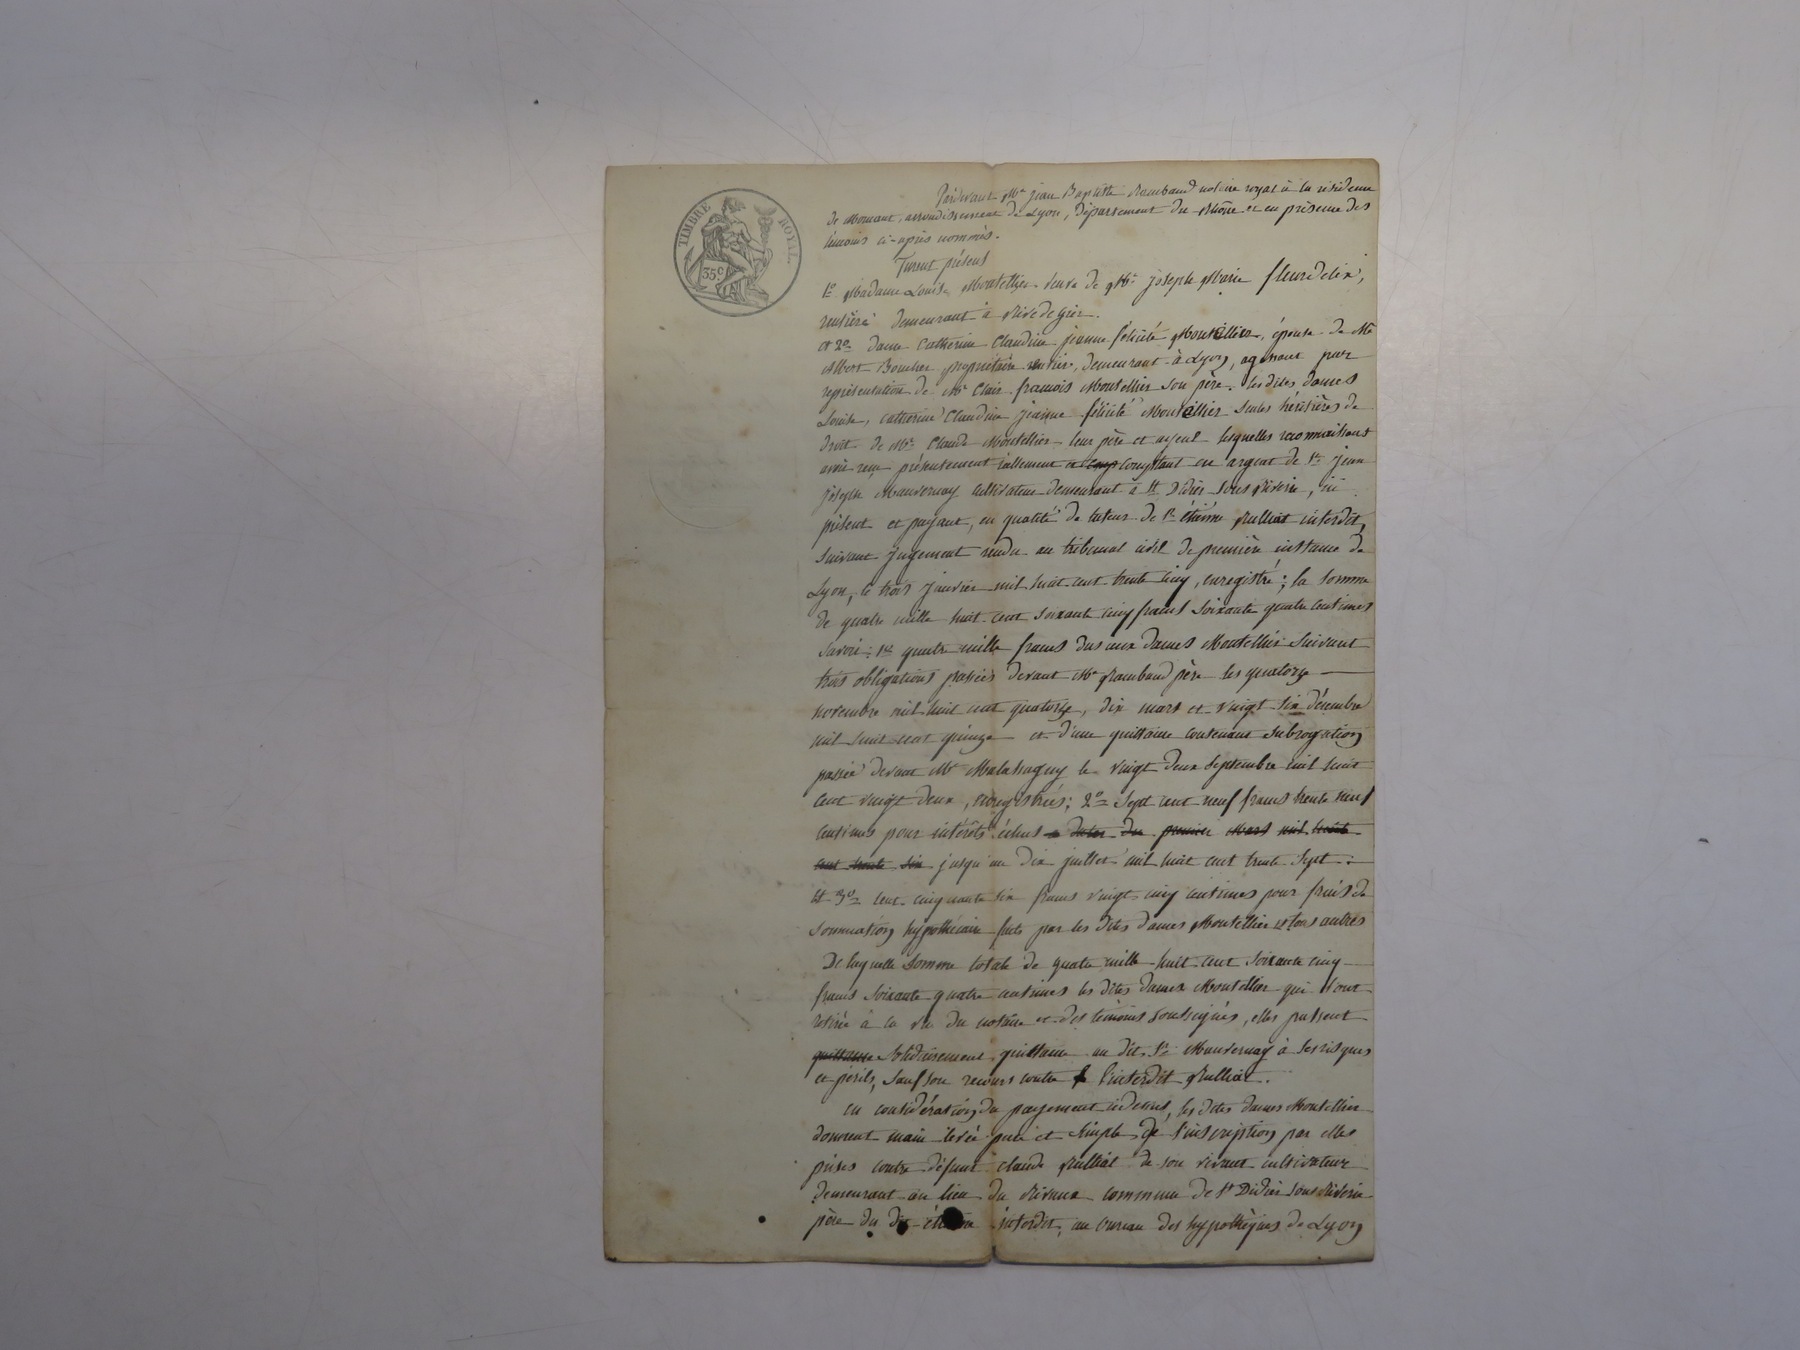 TIMBRE ROYAL.
35c
Pardevant Me Jean Baptiste Rambaud notaire royal à la résidence
de Mornant, arrondissement de Lyon, département du Rhône et en présence des
témoins ci-après nommés.
Furent présens
1o Madame Louise Montellier veuve de Mr Joseph Marie fleurdelix,
rentière demeurant à Rive de gier.
et 2o dame Catherine Claudine jeanne félicité Montellier, épouse de Mr
Albert Boucher propriétaire rentier, demeurant à Lyon, agissant par
représentation de Mr Clair françois Montellier son père. les dites dames
Louise, catherine Claudine jeanne félicité Montellier seules héritières de
droit de Mr Claude Montellier leur père et ayeul lesquelles reconnaissent
avoir reçu présentement réellement et comptant en argent de Sr Jean
Joseph Mauvernay cultivateur demeurant à St Didier sous Riverie, ici
présent et payant, en qualité de tuteur de Sr étienne Rulliat interdit,
suivant jugement rendu au tribunal civil de première instance de
Lyon, le trois janvier mil huit cent trente cinq, enregistré; la somme
de quatre mille huit cent soixante cinq francs soixante quatre centimes
savoir: 1o quatre mille francs dus aux dames Montellier suivant
trois obligations passées devant Me Rambaud père les quatorze
novembre mil huit cent quatorze, dix mars et vingt six décembre
mil huit cent quinze et d'une quittance contenant subrogation
passée devant Me Malassagny le vingt deux septembre mil huit
cent vingt deux, enregistrés; 2o Sept cent neuf francs trente neuf
centimes pour intérêts échus à dater du premier Mars mil huit
cent trente six jusqu'au dix juillet mil huit cent trente sept.
Et 3o cent cinquante six francs vingt cinq centimes pour frais de
sommation hypothécaire faite par les dites dames Montellier et tous autres
De laquelle somme totale de quatre mille huit cent soixante cinq
francs soixante quatre centimes les dites dames Montellier qui l'ont
retirée à la vue du notaire et des témoins soussignés, elles passent
quittance solidairement quittance au dit Sr Mauvernay à ses risques
et périls, sauf son recours contre l'interdit Rulliat.
En considération du payement cidessus, les dites dames Montellier
donnent main levée pure et simple de l'inscription par elles
prises contre défunt claude Rulliat de son vivant cultivateur
demeurant au lieu du commune de St Didier sous Riverie
père du dit étienne interdit, au bureau des hypothèques de Lyon